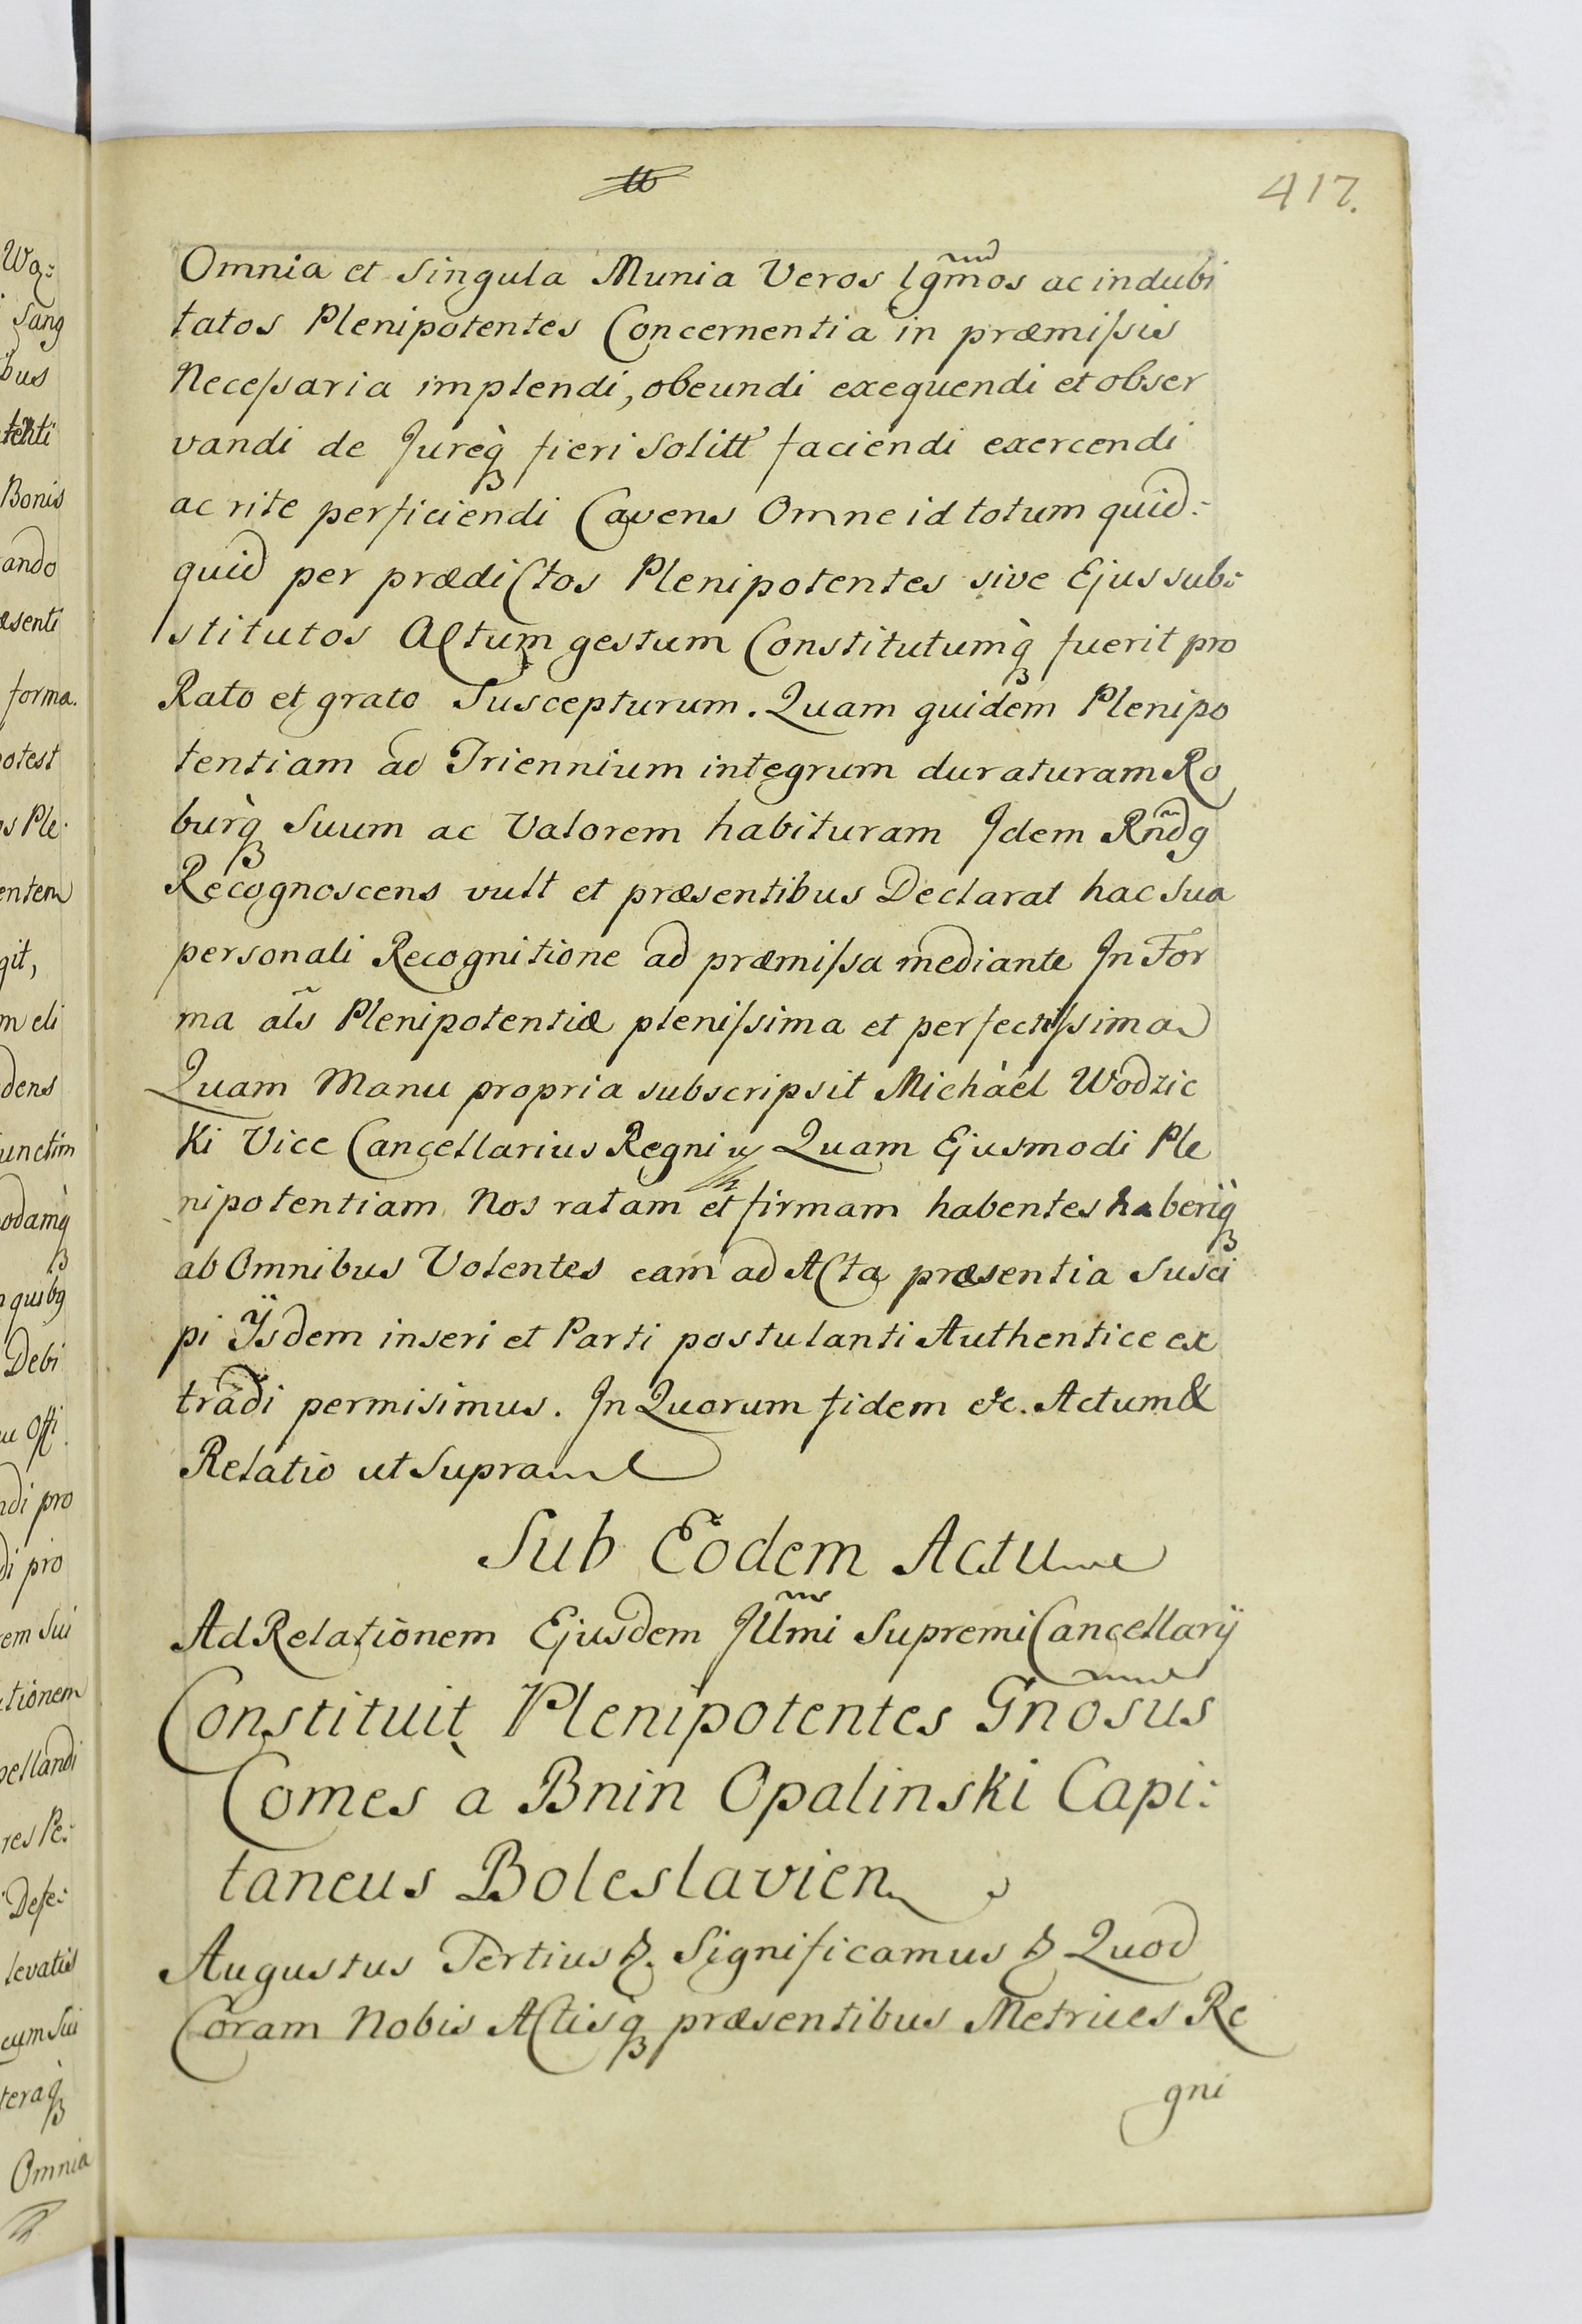 417.
Omnia et singula Munia Veros lg̃mos ac indubi
tatos Plenipotentes Concernentia in præmissis
Necessaria implendi, obeundi exequendi et obser
vandi de Jureq́ꝫ fieri Solitt' faciendi exercendi
ac rite perficiendi Cavens Omne id totum quid:
quid per prædictos Plenipotentes sive Ejus sub:
stitutos Actum gestum Constitutumq́ꝫ fuerit pro
Rato et grato Suscepturum. Quam quidem Plenipo
tentiam ad Triennium integrum duraturam Ro
burq́ꝫ Suum ac Valorem habituram Jdem Rñdg
Recognoscens vult et præsentibus Declarat hac Sua
personali Recognitione ad præmissa mediante Jn For
ma al̃s Plenipotentiæ plenissima et perfectissima
Quam Manu propria subscripsit Michàél Wodzic
Ki Vice Cancellarius Regni Quam Ejusmodi Ple
nipotentiam Nos ratam et firmam habentes haberiq́ꝫ
ab Omnibus Volentes eam ad Acta præsentia Susci
pi Ÿsdem inseri et Parti postulanti Authentice ex
tradi permisimus. Jn Quorum fidem etc. Actum &
Relatio ut Supra
Sub Eodem Actu
Ad Relationem Ejusdem Jllm̃i Supremi Cancellarÿ
Constituit Plenipotentes Gñosus
Comes à Bnin Opalinski Capi:
taneus Boleslavien
Augustus Tertius &. Significamus & Quod
Coram Nobis Actisqꝫ præsentibus Metrices Re
gni
Wo:
Sang
bus
tenti
Bonis
ando
æsenti
forma.
otest
s Ple:
entem
git,
m eli
dens
unctim
odamq́ꝫ
quibg
Debi
u Offi
ndi pro
di pro
rem Sui
tionem
pellandi
res Pe:
Defe:
levatis
cum Sui
teraq́ꝫ
Omnia